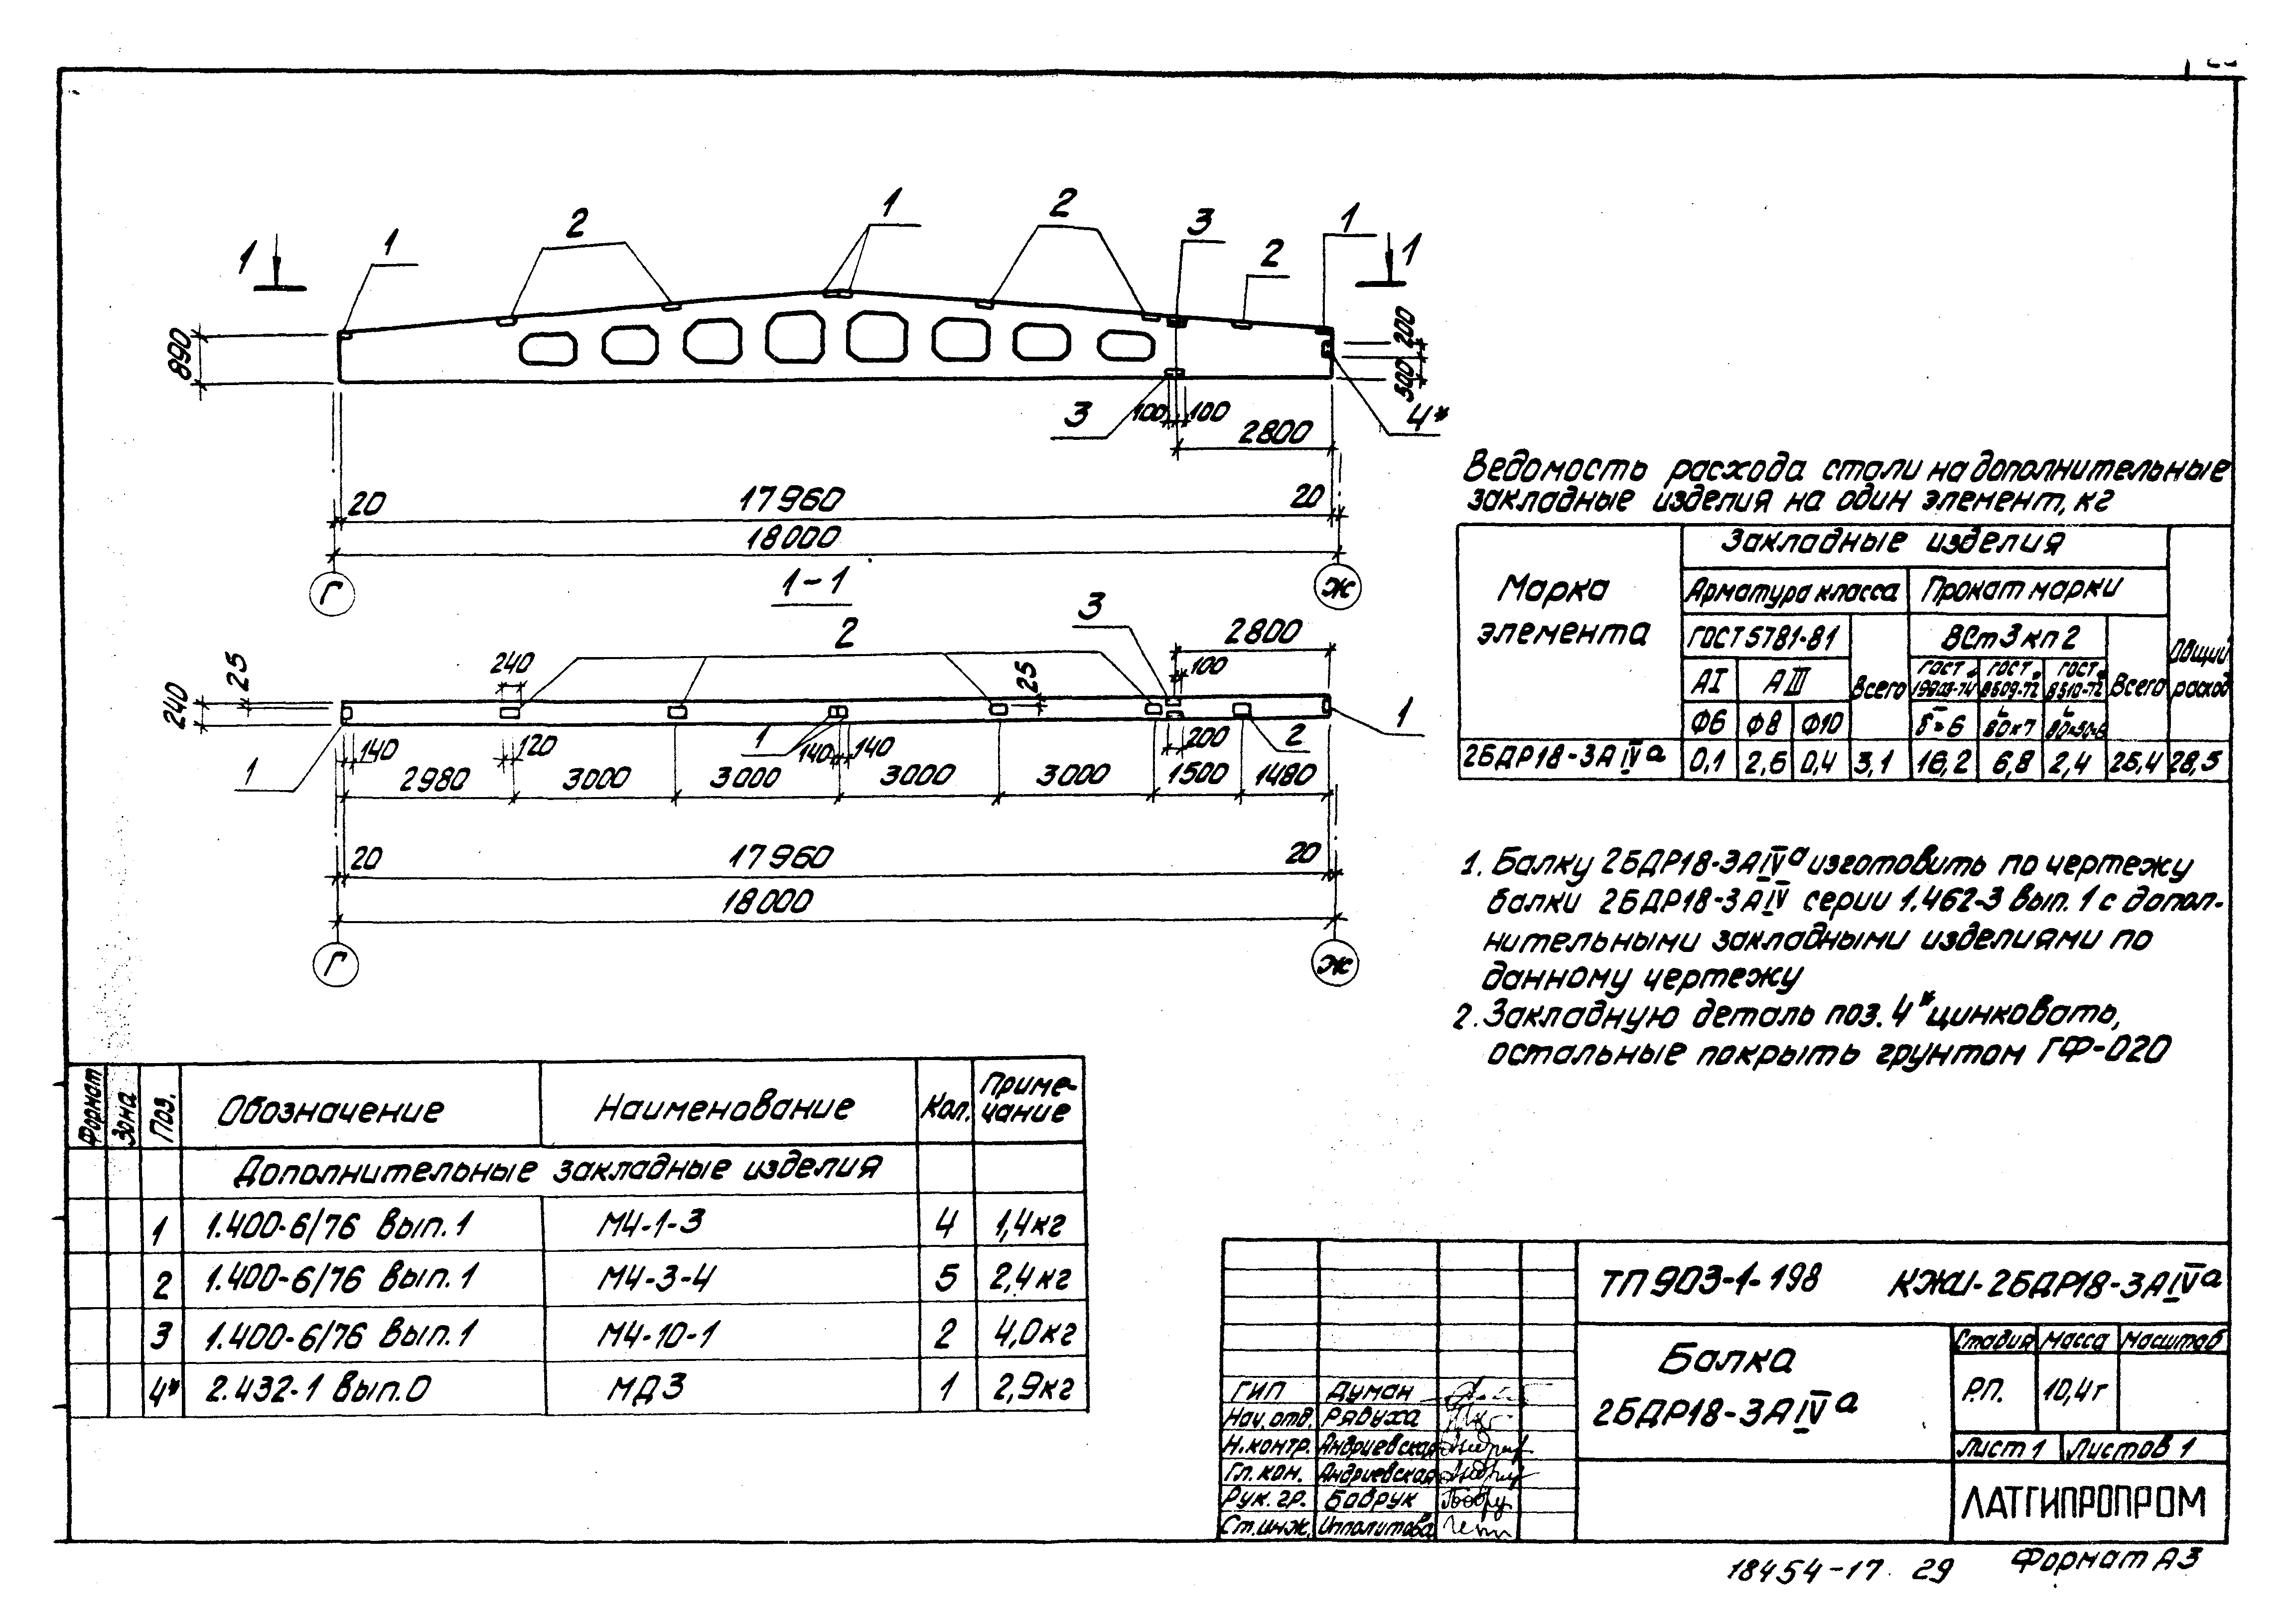 1 2 1 2 3 1
1 2 1
890
200
500
3 100 100 4*
2800
20 17960 20
18000
Г 1-1 Ж
3
2 2800
25 240 25 100
240
1 1
140 120 140 140 200 2
1 2980 3000 3000 3000 3000 1500 1480
20 17960 20
18000
Г Ж
Ведомость расхода стали на дополнительные
закладные изделия на один элемент, кг
Марка элемента
Закладные изделия
Общий расход
Арматура класса Прокат марки
ГОСТ 5781-81 Всего ВСт3кп2 Всего
АI АIII ГОСТ 19903-74 ГОСТ 8509-72 ГОСТ 8510-72
Ф6 Ф8 Ф10 δ=6 L80×7
2БДР18-3АIVа 0,1 2,6 0,4 3,1 16,2 6,8 2,4 25,4 28,5
1. Балку 2БДР18-3АIVа изготовить по чертежу
балки 2БДР18-3АIV серии 1.462-3 вып. 1 с допол-
нительными закладными изделиями по
данному чертежу
2. Закладную деталь поз. 4* цинковать,
остальные покрыть грунтом ГФ-020
Формат Зона Поз. Обозначение Наименование Кол. Приме-
чание
Дополнительные закладные изделия
1 1.400-6/76 вып. 1 М4-1-3 4 1,4кг
2 1.400-6/76 вып. 1 М4-3-4 5 2,4кг
3 1.400-6/76 вып. 1 М4-10-1 2 4,0кг
4* 2.432-1 вып. 0 МД3 1 2,9кг
ТП 903-1-198 КЖИ-2БДР18-3АIVа
Балка
2БДР18-3АIVа
Стадия Масса Масштаб
Р.П. 10,4т
Лист 1 Листов 1
ЛАТГИПРОПРОМ
ГИП Думан
Нач. отд. Рябуха
Н. контр. Андриевская
Гл. кон. Андриевская
Рук. гр. Бобрук
Ст. инж. Ипполитова
18454-17 29 Формат А3